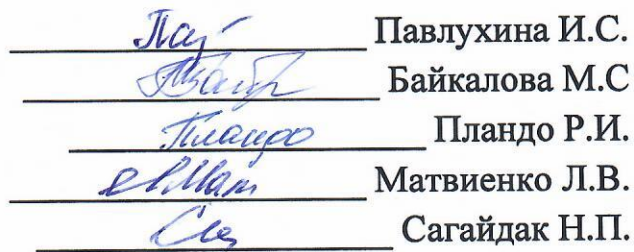 Павлухина И.С.
Байкалова М.С
Пландо Пландо Р.И.
Матвиенко Л.В.
Сагайдак Н.П.